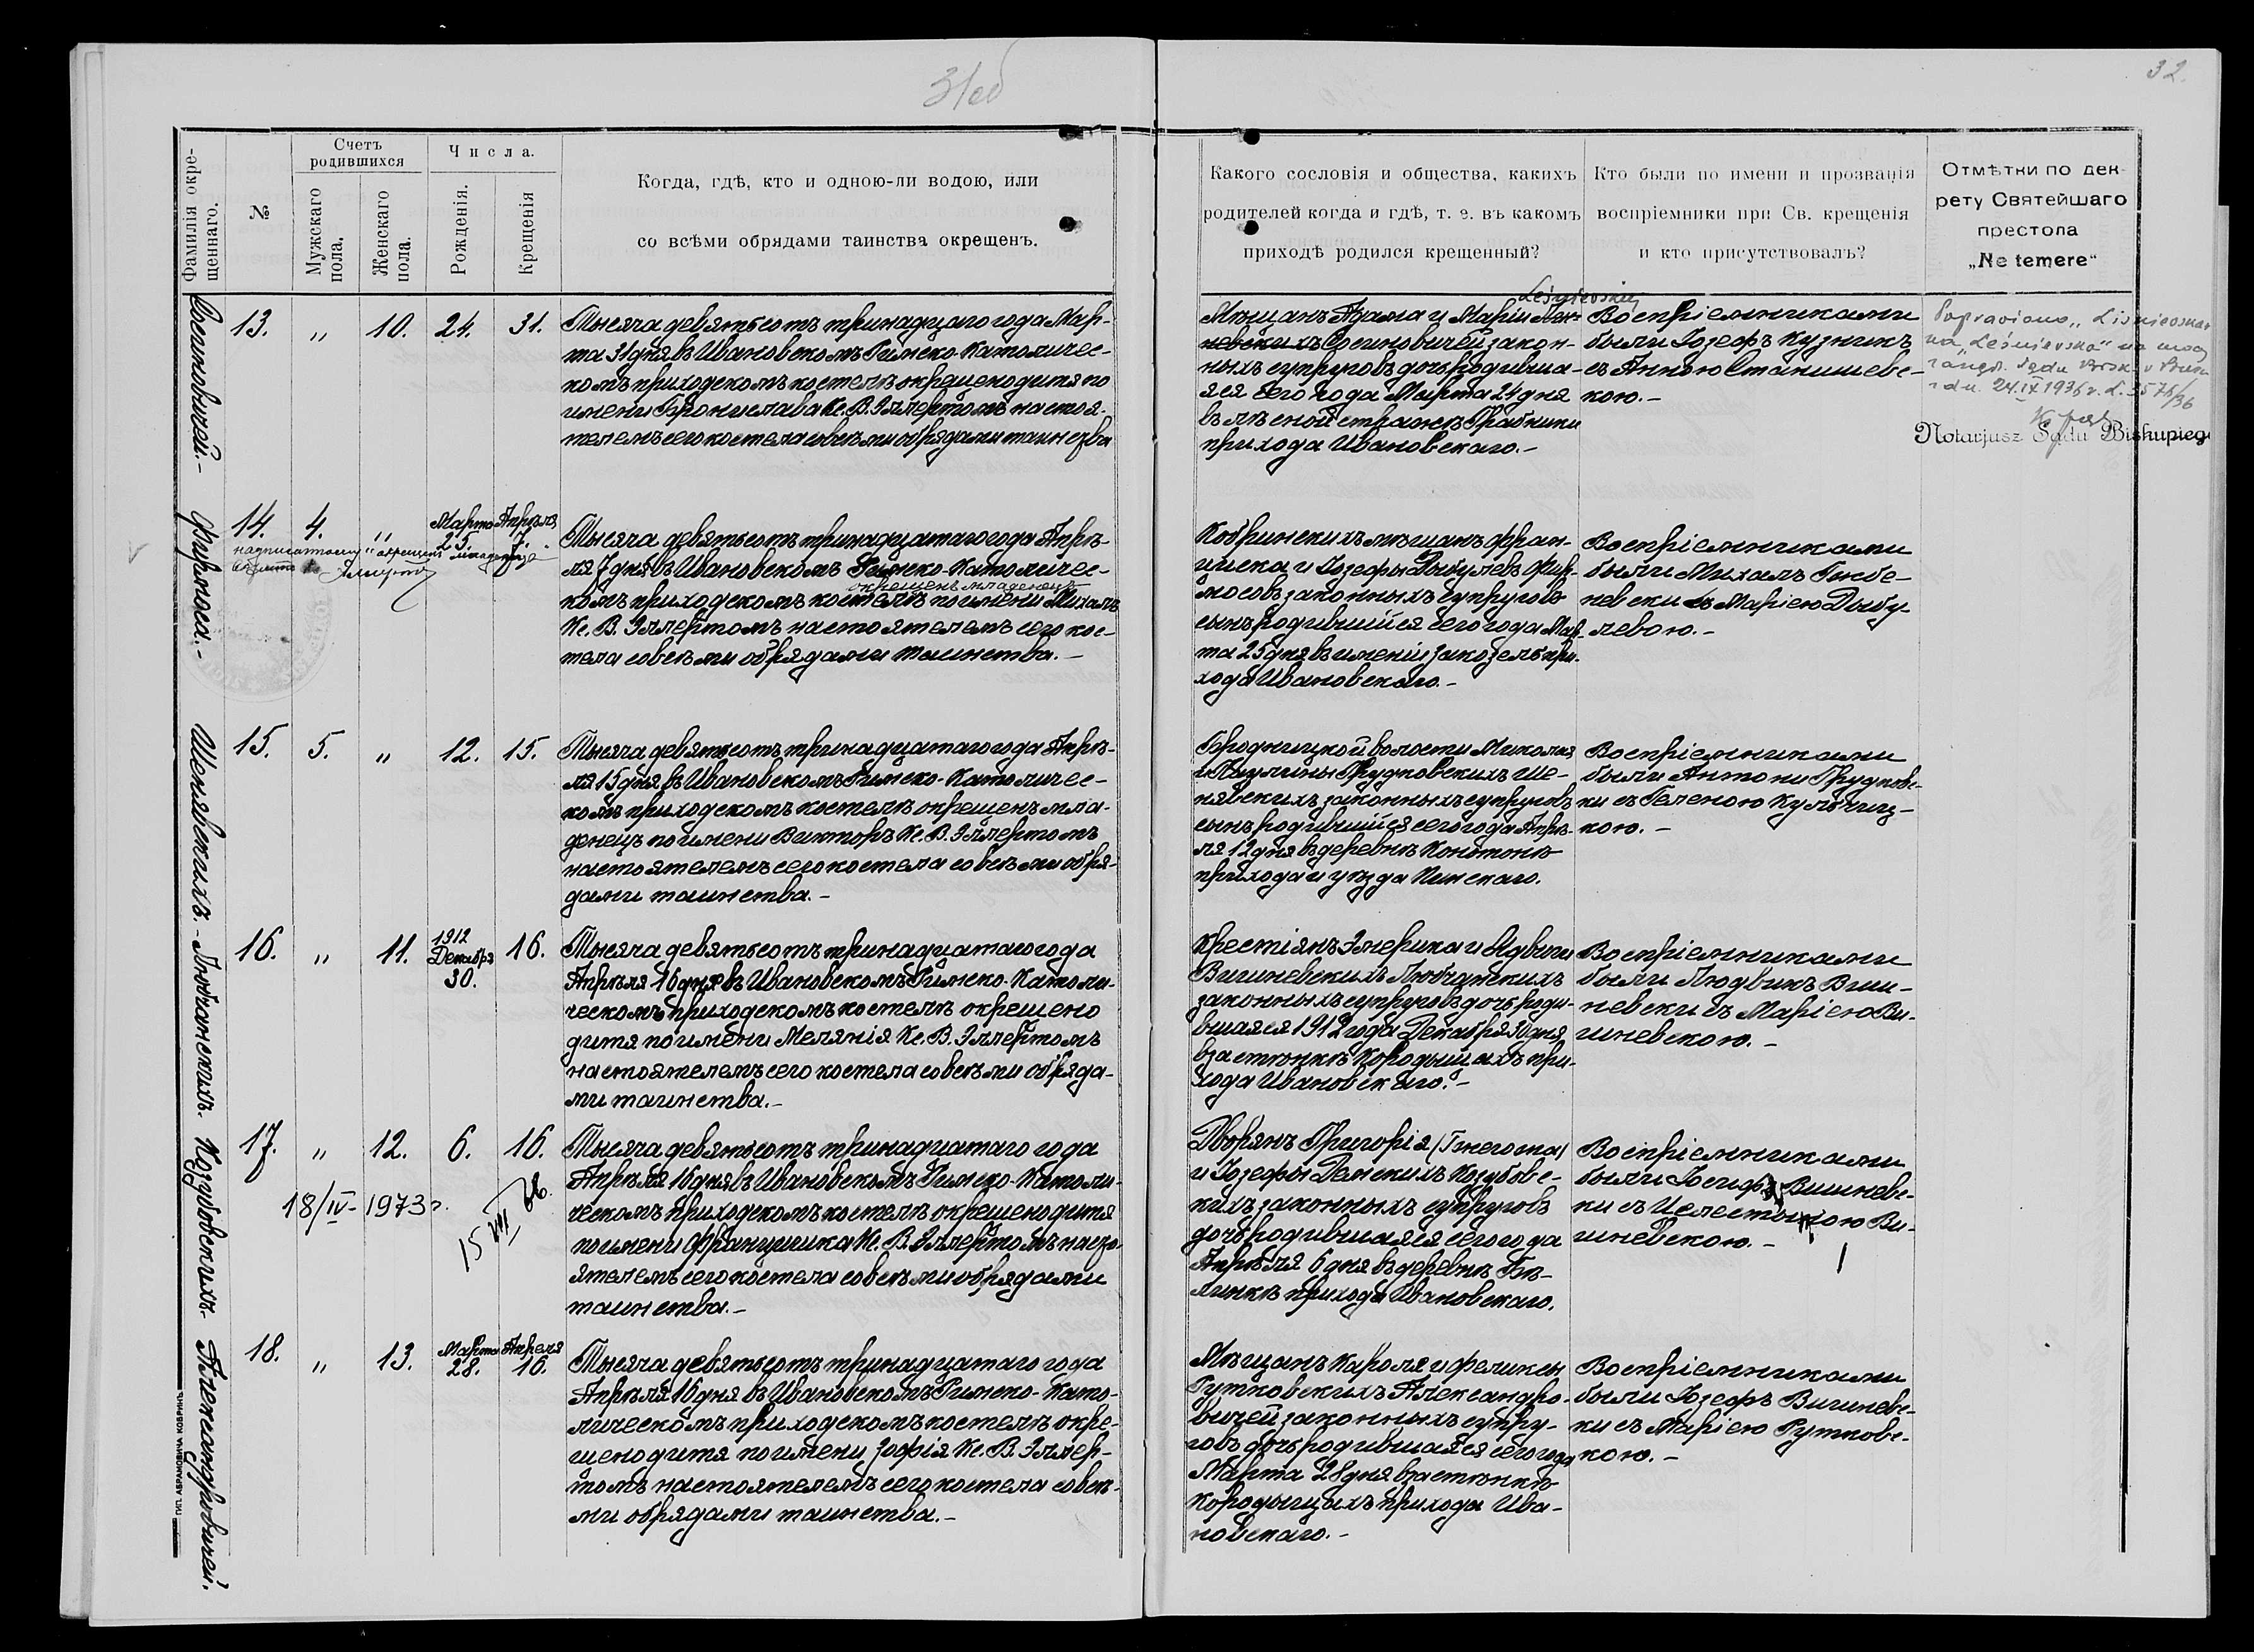 31об
32.
Фамилія окре-
щеннаго.
№
Счетъ
родившихся
Мужскаго
пола.
Женскаго
пола.
Числа.
Рожденія.
Крещенія
Когда, гдѣ, кто и одною-ли водою, или
со всѣми обрядами таинства окрещенъ.
Какого сословія и общества, какихъ
родителей когда и гдѣ, т. е. въ какомъ
приходѣ родился крещенный?
Кто были по имени и прозванія
воспріемники при Св. крещенія
и кто присутствовалъ?
Отмѣтки по дек-
рету Святейшаго
престола
„Ne temere“
13. „ 10. 24. 31.
Тысяча девятьсотъ тринадцаго года Мар-
та 31 дня въ Ивановскомъ Римско-Католичес-
комъ приходскомъ костелѣ окрещено дитя по
имени Бронислава Кс. В. Эллертомъ настоя-
телемъ сего костела совсѣми обрядами таинства
Leśnievskiej
Мѣщанъ Адама и Маріи
невскихъ законн-
ныхъ супруговъ дочь родивша-
яся сего года Марта 24 дня
въ лѣсной странѣ Грабники
прихода Ивановскаго.-
Воспріемниками
были Іозефъ Кузникъ
съ Анною Станишевс-
кою.-
Poprawiono „Lisnievska“
na „Leśnievska“ na mocy
z dn. 24.IX.1936 r. L. 3576/36
Notarjusz Sądu Biskupieg
Фирмоса.-
14. 4. „ Марта 25. Апрѣля 7.
Тысяча девятьсотъ тринадцатаго года Апрѣ-
ля 7 дня въ Ивановскомъ Римско-Католичес-
окрещенъ младенецъ
комъ приходскомъ костелѣ по имени Михалъ
Кс. В. Эллертомъ настоятелемъ сего кос-
тела совсѣми обрядами таинства.-
Кобринскихъ мѣщанъ Фран-
циска и Іозефы Дыбулевъ Фир-
мосовъ законныхъ супруговъ
сынъ родившійся сего года Мар-
та 25 дня въ имѣніи Закозелѣ при-
хода Ивановскаго.-
Воспріемниками
были Михалъ
невски съ Маріею Дыбу-
левою.-
15. 5. „ 12. 15.
Тысяча девятьсотъ тринадцатаго года Апрѣ-
ля 15 дня въ Ивановскомъ Римско-Католичес-
комъ приходскомъ костелѣ окрещенъ мла-
денецъ по имени Викторъ Кс. В. Эллертомъ
настоятелемъ сего костела совсѣми обря-
дами таинства.-
Бродницкой волости Миколая
и Паулины Грудковскихъ Ше-
нявскихъ законныхъ супруговъ
сынъ родившійся сего года Апрѣ-
ля 12 дня въ деревнѣ
прихода и уѣзда Пинскаго.
Воспріемниками
были Антони Грудковс-
ки съ Геленою Кульчиц-
кою.-
Шенявскихъ.-
Любчанскихъ.
16. „ 11. 1912 Декабря 30. 16.
Тысяча девятьсотъ тринадцатаго года
Апрѣля 16 дня въ Ивановскомъ Римско-Католи-
ческомъ приходскомъ костелѣ окрещено
дитя по имени Мелянія Кс. В. Эллертомъ
настоятелемъ сего костела совсѣми обряда-
ми таинства.-
Крестіянъ Эмерика и Ядвиги
Вишневскихъ Любчанскихъ
законныхъ супруговъ дочь роди-
вшаяся 1912 года Декабря 30 дня
въ застѣнкѣ Кородыщахъ при-
хода Ивановскаго.-
Воспріемниками
были Людвикъ Виш-
невски съ Маріею Ви-
шневскою.-
Козубовскихъ.
17. „ 12. 6. 16.
18/IV-1973 г.
15 VII 66.
Тысяча девятьсотъ тринадцатаго года
Апрѣля 16 дня въ Ивановскомъ Римско-Католи-
ческомъ приходскомъ костелѣ окрещено дитя
по имени Францишка Кс. В. Эллертомъ насто-
ятелемъ сего костела совсѣми обрядами
таинства.-
Дворянъ Григорія
и Іозефы Демскихъ Козубовс-
кихъ законныхъ супруговъ
дочь родившаяся сего года
Апрѣля 6 дня въ деревнѣ Бѣ-
линкѣ прихода Ивановскаго.
Воспріемниками
были Іосифъ Вишневс-
ки съ Целестыною Ви-
шневскою.-
Александровичей.
18. „ 13. Марта 28. Апреля 16.
Тысяча девятьсотъ тринадцатаго года
Апрѣля 16 дня въ Ивановскомъ Римско-Като-
лическомъ приходскомъ костелѣ окре-
щено дитя по имени Зофія Кс. В. Эллер-
томъ настоятелемъ сего костела совсѣ-
ми обрядами таинства.-
Мѣщанъ Кароля и Феликсы
Рутковскихъ Александро-
вичей законныхъ супру-
говъ дочь родившаяся сего года
Марта 28 дня въ застѣнкѣ
Кородыщахъ прихода Ива-
новскаго.-
Воспріемниками
были Іозефъ Вишневс-
ки съ Маріею Рутковс-
кою.-
ТИП. АБРАМОВИЧА КОБРИНЪ.